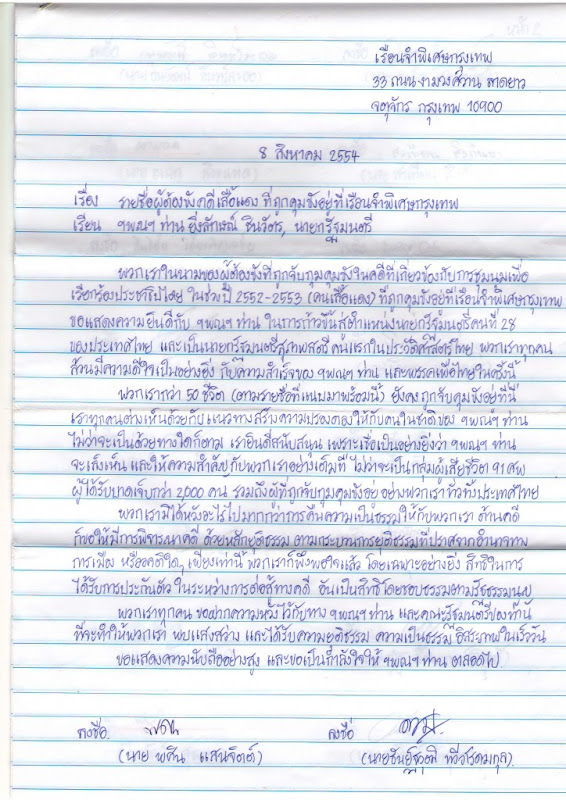 เรือนจำพิเศษกรุงเทพ
33 ถนนงามวงศ์วาน ลาดยาว
จตุจักร กรุงเทพ 10900
8 สิงหาคม 2554
เรื่อง รายชื่อผู้ต้องขังคดีเสื้อแดง ที่ถูกคุมขังอยู่ที่เรือนจำพิเศษกรุงเทพ
เรียน ฯพณฯ ท่าน ยิ่งลักษณ์ ชินวัตร, นายกรัฐมนตรี
พวกเราในนามของผู้ต้องขังที่ถูกจับกุมคุมขังในคดีที่เกี่ยวข้องกับการชุมนุมเพื่อ
เรียกร้องประชาธิปไตย ในช่วงปี 2552-2553 (คนเสื้อแดง) ที่ถูกคุมขังอยู่ที่เรือนจำพิเศษกรุงเทพ
ขอแสดงความยินดีกับ ฯพณฯ ท่าน ในการก้าวขึ้นสู่ตำแหน่งนายกรัฐมนตรีคนที่ 28
ของประเทศไทย และเป็นนายกรัฐมนตรีสุภาพสตรี คนแรกในประวัติศาสตร์ไทย พวกเราทุกคน
ล้วนมีความดีใจเป็นอย่างยิ่ง กับความสำเร็จของ ฯพณฯ ท่าน และพรรคเพื่อไทยในครั้งนี้
พวกเรากว่า 50 ชีวิต (ตามรายชื่อที่แนบมาพร้อมนี้) ยังคงถูกจับคุมขังอยู่ที่นี่
เราทุกคนต่างเห็นด้วยกับแนวทางสร้างความปรองดองให้กับคนในชาติของ ฯพณฯ ท่าน
ไม่ว่าจะเป็นด้วยทางใดก็ตาม เรายินดีสนับสนุน เพราะเชื่อเป็นอย่างยิ่งว่า ฯพณฯ ท่าน
จะเล็งเห็น และให้ความสำคัญกับพวกเราอย่างเต็มที่ ไม่ว่าจะเป็นกลุ่มผู้เสียชีวิต 91 ศพ
ผู้ได้รับบาดเจ็บกว่า 2,000 คน รวมถึงผู้ที่ถูกจับกุมคุมขังอยู่ อย่างพวกเรา ทั่วทั้งประเทศไทย
พวกเรามิได้หวังอะไรไปมากกว่าการคืนความเป็นธรรมให้กับพวกเรา ด้านคดี
ก็ขอให้มีการพิจารณาคดี ด้วยหลักยุติธรรม ตามกระบวนการยุติธรรมที่ปราศจากอำนาจทาง
การเมือง หรืออคติใดๆ เพียงเท่านี้ พวกเราก็พึงพอใจแล้ว โดยเฉพาะอย่างยิ่ง สิทธิในการ
ได้รับการประกันตัว ในระหว่างการต่อสู้ทางคดี อันเป็นสิทธิโดยชอบธรรมตามรัฐธรรมนูญ
พวกเราทุกคน ขอฝากความหวังไว้กับทาง ฯพณฯ ท่าน และคณะรัฐมนตรีของท่าน
ที่จะทำให้พวกเรา พบแสงสว่าง และได้รับความยุติธรรม ความเป็นธรรม อิสระภาพในเร็ววัน
ขอแสดงความนับถืออย่างสูง และขอเป็นกำลังใจให้ ฯพณฯ ท่าน ตลอดไป
ลงชื่อ ลงชื่อ
(นาย แสนจิตต์) (นาย)